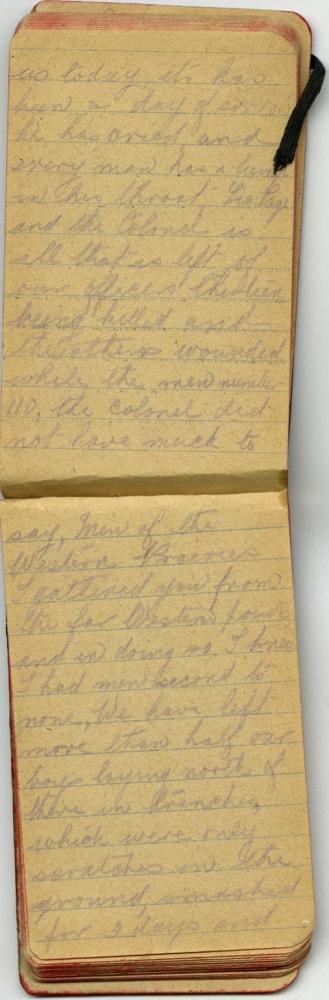 us today, its has
been a day of sorrow
he has cried and
every man has a lump
in his throat,
and the Colonel is
all that is left of
our officers thirteen
being killed and
the others wounded
while the men number
110, the colonel did
not have much to
say, Men of the
Western Prairies
I gathered you from
the far Western
and in doing so I knew
I had men second to
none, We have left
more than half our
boys laying north of
there in trenches,
which were only
scratches in the
ground, smashed
for 3 days and